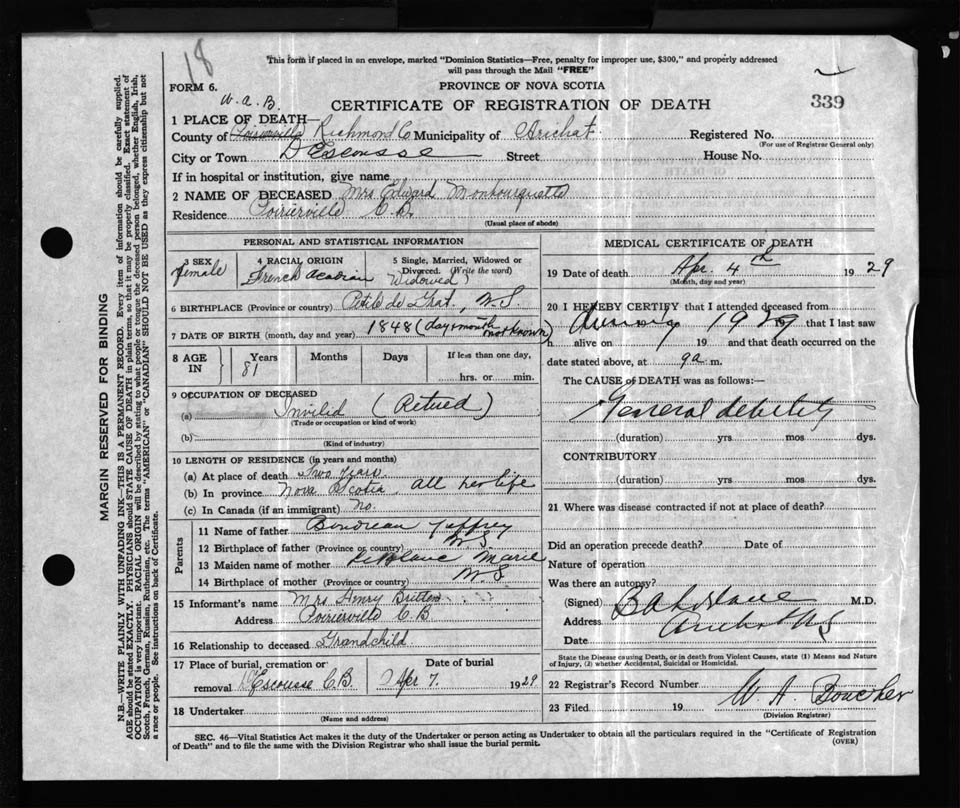 18
This form if placed in an envelope, marked "Dominion Statistics—Free, penalty for improper use, $300," and properly addressed
will pass through the Mail "FREE"
FORM 6.
PROVINCE OF NOVA SCOTIA
W. A. B.
CERTIFICATE OF REGISTRATION OF DEATH
339
1 PLACE OF DEATH—
County of Poirierville Richmond Co Municipality of Arichat Registered No.
(For use of Registrar General only)
City or Town D'Escousse Street House No.
If in hospital or institution, give name
2 NAME OF DECEASED Mrs Edward Monbourquette
Residence Poirierville C.B.
(Usual place of abode)
PERSONAL AND STATISTICAL INFORMATION
3 SEX female
4 RACIAL ORIGIN French Acadian
5 Single, Married, Widowed or Divorced. (Write the word) Widowed
6 BIRTHPLACE (Province or country) Petit de Grat, N.S.
7 DATE OF BIRTH (month, day and year) 1848 (day & month not known)
8 AGE IN
Years Months Days If less than one day,
81 hrs. or min.
9 OCCUPATION OF DECEASED
(a) Invilid (Retired)
(Trade or occupation or kind of work)
(b)
(Kind of industry)
10 LENGTH OF RESIDENCE (in years and months)
(a) At place of death Two years
(b) In province Nova Scotia, all her life
(c) In Canada (if an immigrant) No.
Parents
11 Name of father Boudreau Jeffrey
12 Birthplace of father (Province or country) N S
13 Maiden name of mother Marie
14 Birthplace of mother (Province or country) N S
15 Informant's name Mrs Amry Britten
Address Poirierville C.B
16 Relationship to deceased Grandchild
17 Place of burial, cremation or removal D'Escousse C.B
Date of burial Apr 7. 1929
18 Undertaker
(Name and address)
MEDICAL CERTIFICATE OF DEATH
19 Date of death Apr. 4th 1929
(Month, day and year)
20 I HEREBY CERTIFY that I attended deceased from
during 1929 19 19 that I last saw
h alive on 19 and that death occurred on the
date stated above, at 9 a m.
The CAUSE of DEATH was as follows:—
General debility
(duration) yrs mos dys.
CONTRIBUTORY
(duration) yrs mos dys.
21 Where was disease contracted if not at place of death?
Did an operation precede death? Date of
Nature of operation
Was there an autopsy?
(Signed) M.D.
Address Arichat N S
Date
State the Disease causing Death, or in death from Violent Causes, state (1) Means and Nature
of Injury, (2) whether Accidental, Suicidal or Homicidal.
22 Registrar's Record Number
23 Filed 19 W. A. Boucher
(Division Registrar)
SEC. 46—Vital Statistics Act makes it the duty of the Undertaker or person acting as Undertaker to obtain all the particulars required in the "Certificate of Registration
of Death" and to file the same with the Division Registrar who shall issue the burial permit.
(OVER)
MARGIN RESERVED FOR BINDING
N.B.—WRITE PLAINLY WITH UNFADING INK—THIS IS A PERMANENT RECORD. Every item of information should be carefully supplied.
AGE should be stated EXACTLY. PHYSICIANS should STATE CAUSE OF DEATH in plain terms, so that it may be properly classified. Exact statement of
OCCUPATION is very important. RACIAL ORIGIN will be described by stating to what people or tongue the deceased person belonged, whether English, Irish,
Scotch, French, German, Russian, Ruthenian, etc. The terms "AMERICAN" or "CANADIAN" SHOULD NOT BE USED as they express citizenship but not
a race or people. See instructions on back of Certificate.